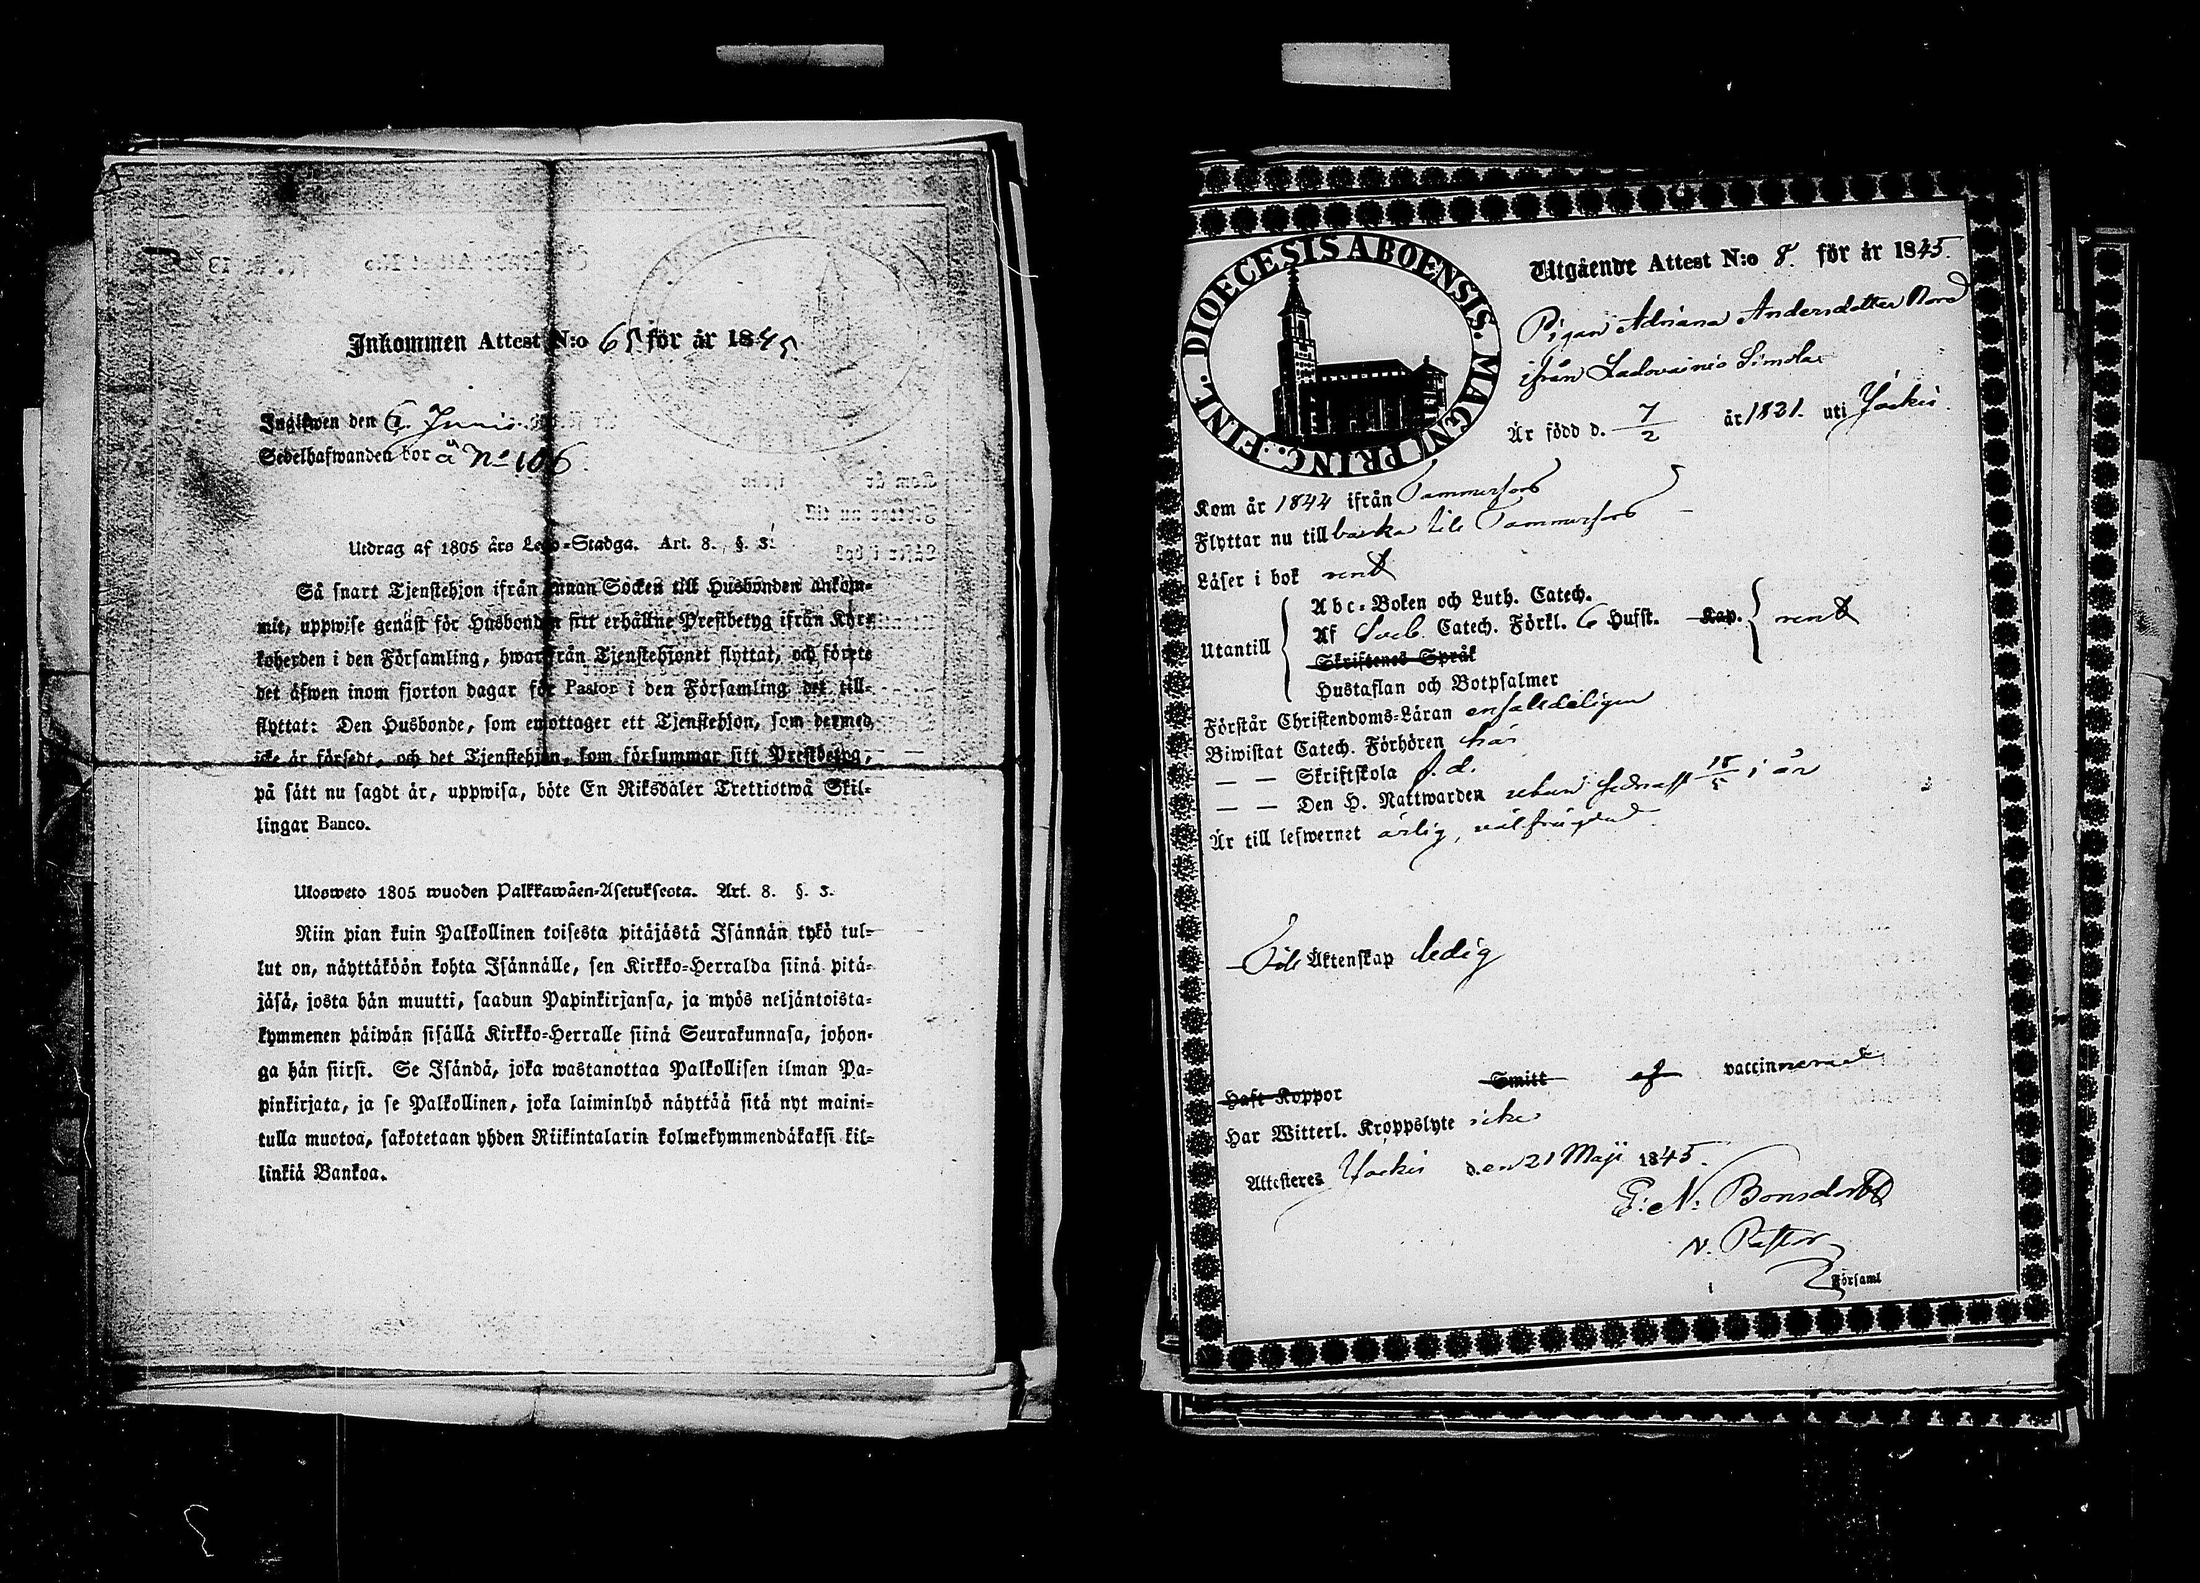 Inkommen Attest N:o 65 för år 1845
Ingifwen den 6. Junii.
Sedelhafwanden bor å No 106.
Utdrag af 1805 års Lego-Stadga. Art. 8. §. 3.
Så snart Tjenstehjon ifrån annan Socken till Husbonden ankom-
mit, uppwise genast för Husbonden sitt erhållne Prestbetyg ifrån Kyrk-
koherden i den Församling, hwarifrån Tjenstehjonet flyttat, och förete
det äfwen inom fjorton dagar för Pastor i den Församling det till-
flyttat: Den Husbonde, som emottager ett Tjenstehjon, som dermed
icke är försedt, och det Tjenstehjon, som försummar sitt Prestbetyg,
på sätt nu sagdt är, uppwisa, böte En Riksdaler Trettiotwå Skil-
lingar Banco.
Ulosweto 1805 wuoden Palkkawäen-Asetuksesta. Art. 8. §. 3.
Niin pian kuin Palkollinen toisesta pitäjästä Isännän tykö tul-
lut on, näyttäköön kohta Isännälle, sen Kirkko-Herralda siinä pitä-
jäsä, josta hän muutti, saadun Papinkirjansa, ja myös neljäntoista-
kymmenen päiwän sisällä Kirkko-Herralle siinä Seurakunnasa, johon-
ga hän siirsi. Se Isändä, joka wastanottaa Palkollisen ilman Pa-
pinkirjata, ja se Palkollinen, joka laiminlyö näyttää sitä nyt maini-
tulla muotoa, sakotetaan yhden Riikintalarin kolmekymmendäkaksi kil-
linkiä Bankoa.
DIOECESIS ABOENSIS. MAGNI PRINC. FINL.
Utgående Attest N:o 8. för år 1845.
Pigan Adriana Andersdotter Nord
ifrån Ladovainio Simola
Är född d. 7/2 år 1821. uti Yläkis.
Kom år 1844 ifrån Tammerfors
Flyttar nu till baka till Tammerfors
Läser i bok rent
Utantill
Abc-Boken och Luth. Catech.
Af Sveb. Catech. Förkl. 6 Hufst. Kap. rent
Skriftenes Språk
Hustaflan och Botpsalmer
Förstår Christendoms-Läran enfaldeligen
Biwistat Catech. Förhören här
— — Skriftskola s. d.
— — Den H. Nattwarden sednast 18/5 i år
Är till lefwernet ärlig, välfrägdad
Till Äktenskap ledig
Haft Koppor Smitt af vaccinnerad
Har Witterl. Kroppslyte icke
Attesteres den 21 Maji 1845.
G: N: Bonsdorff
v. Pastor
Församl